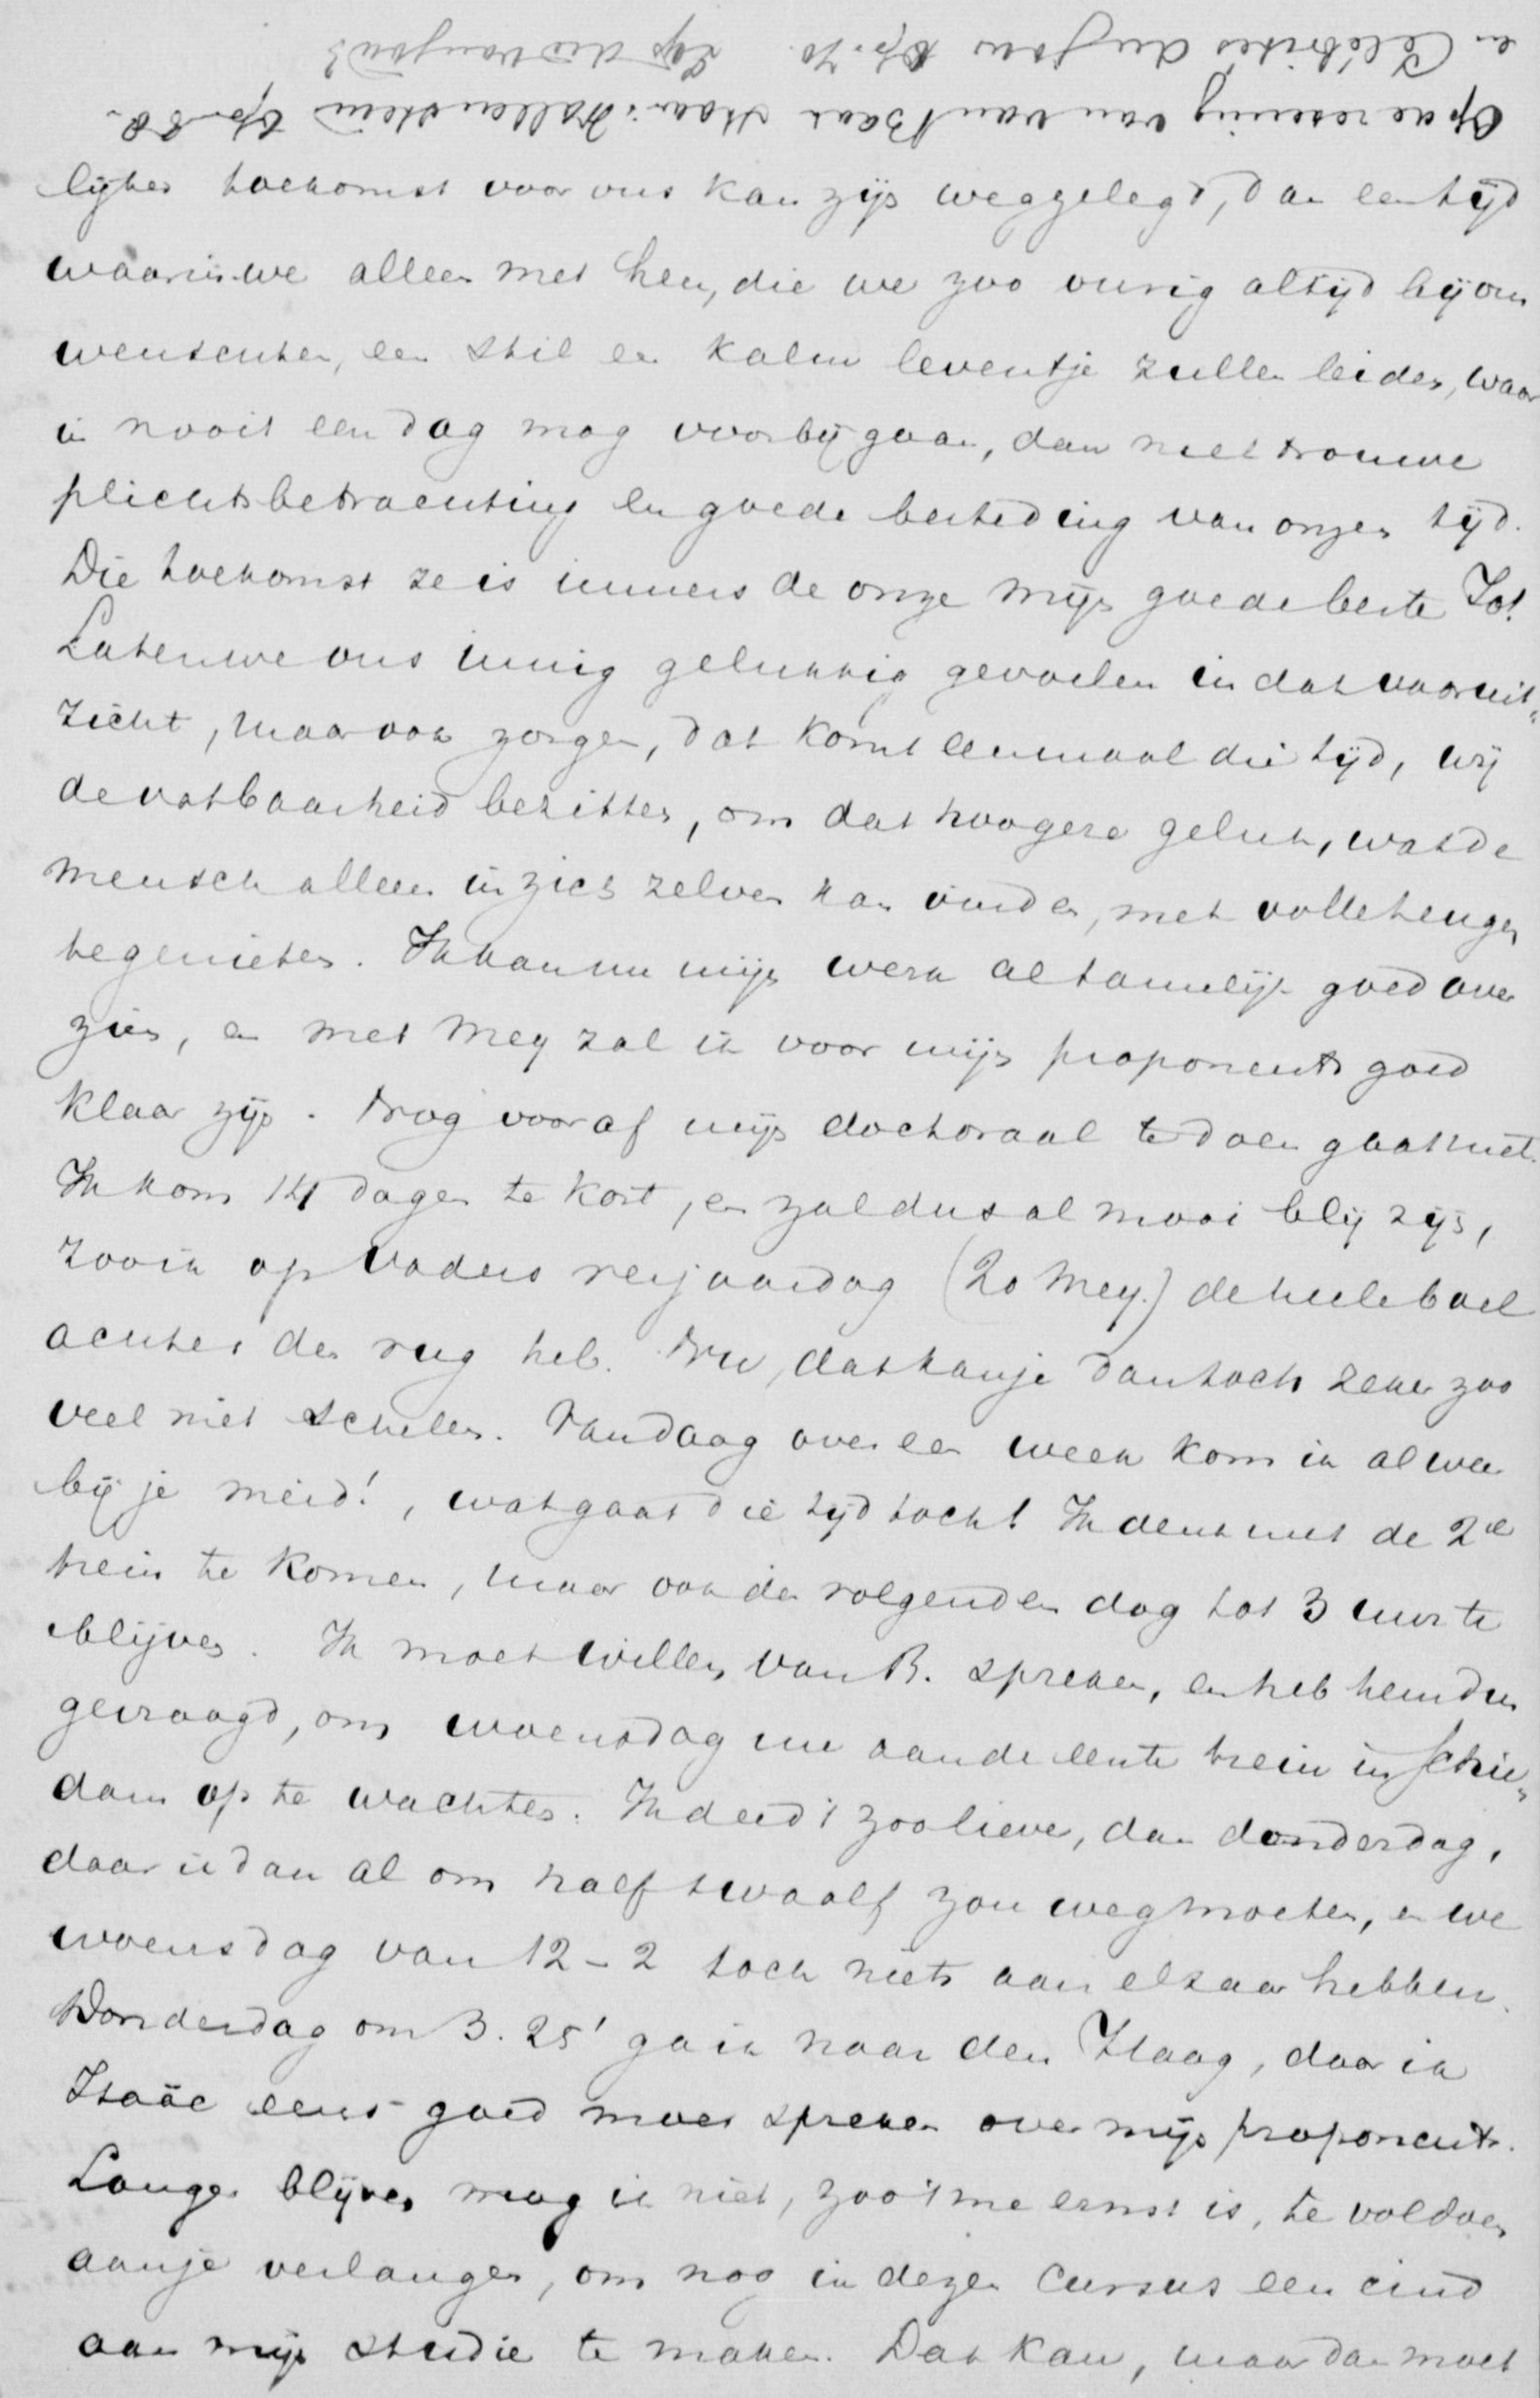 Op de rekening van van Baar staan: Wallenstein f p. 80
en Celébrités du jour f p. 70. Zijn die van jou?
lijker toekomst voor ons kan zijn weggelegd, dan een tijd
waarin we alleen met hen, die we zoo vurig altijd bij ons
wenschten, een stil en kalm leventje zullen leiden, waar
in nooit een dag mag voorbij gaan, dan met trouwe
plichtsbetrachting en goede besteding van onzen tijd.
Die toekomst ze is immers de onze mijn goede beste Jo!
Laten we ons innig gelukkig gevoelen in dat vooruit"
zicht, maar ook zorgen, dat komt eenmaal die tijd, wij
de vatbaarheid bezitten, om dat hoogere geluk, wat de
mensch alleen in zich zelven kan vinden, met volle teugen
te genieten. Ik kan nu mijn werk al tamelijk goed over
zien, en met Mey zal ik voor mijn proponents goed
klaar zijn. Nog vooraf mijn doctoraal te doen gaat niet.
Ik kom 14 dagen te kort, en zal dus al mooi blij zijn,
zoo ik op Vaders verjaardag (20 Mey.) de heele boel
achter den rug heb. Nu, dat kan je dan toch zeker zoo
veel niet schelen. Vandaag over een week kom ik al weer
bij je meid!, wat gaat die tijd toch! Ik denk met de 2de
trein te komen, maar ook den volgenden dag tot 3 uur te
blijven. Ik moet Willem van B. spreken, en heb hem dus
gevraagd, om woensdag me aan de eerste trein in Schie"
dam op te wachten. Ik deed 't zoo liever, dan donderdag,
daar ik dan al om half twaalf zou weg moeten, en we
woensdag van 12 - 2 toch niets aan elkaar hebben.
Donderdag om 3.25' ga ik naar den Haag, daar ik
Isaäc eens goed moet spreken over mijn proponents.
Langer blijven mag ik niet, zoo 't me ernst is, te voldoen
aan je verlangen, om nog in dezen cursus een eind
aan mijn studie te maken. Dat kan, maar dan moet